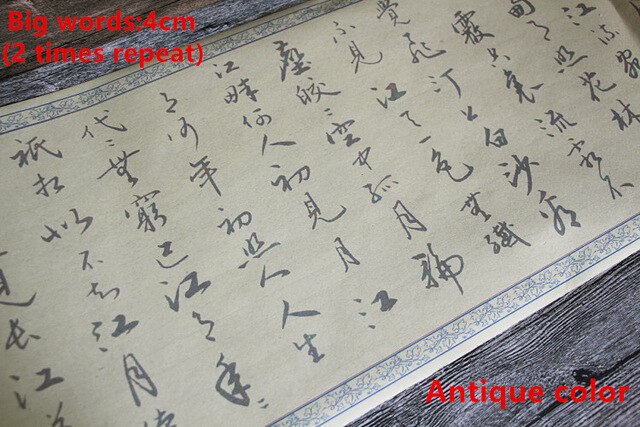 Big words:4cm
(2 times repeat)
江流宛
甸月照花林
霰空裏流霜不
覺飛汀上白沙看
不見江天一色無纖
塵皎〻空中孤月輪
江畔何人初見月江
月何年初照人人生
代〻無窮已江月年〻
祇相似不知江月待
見長江送
Antique color